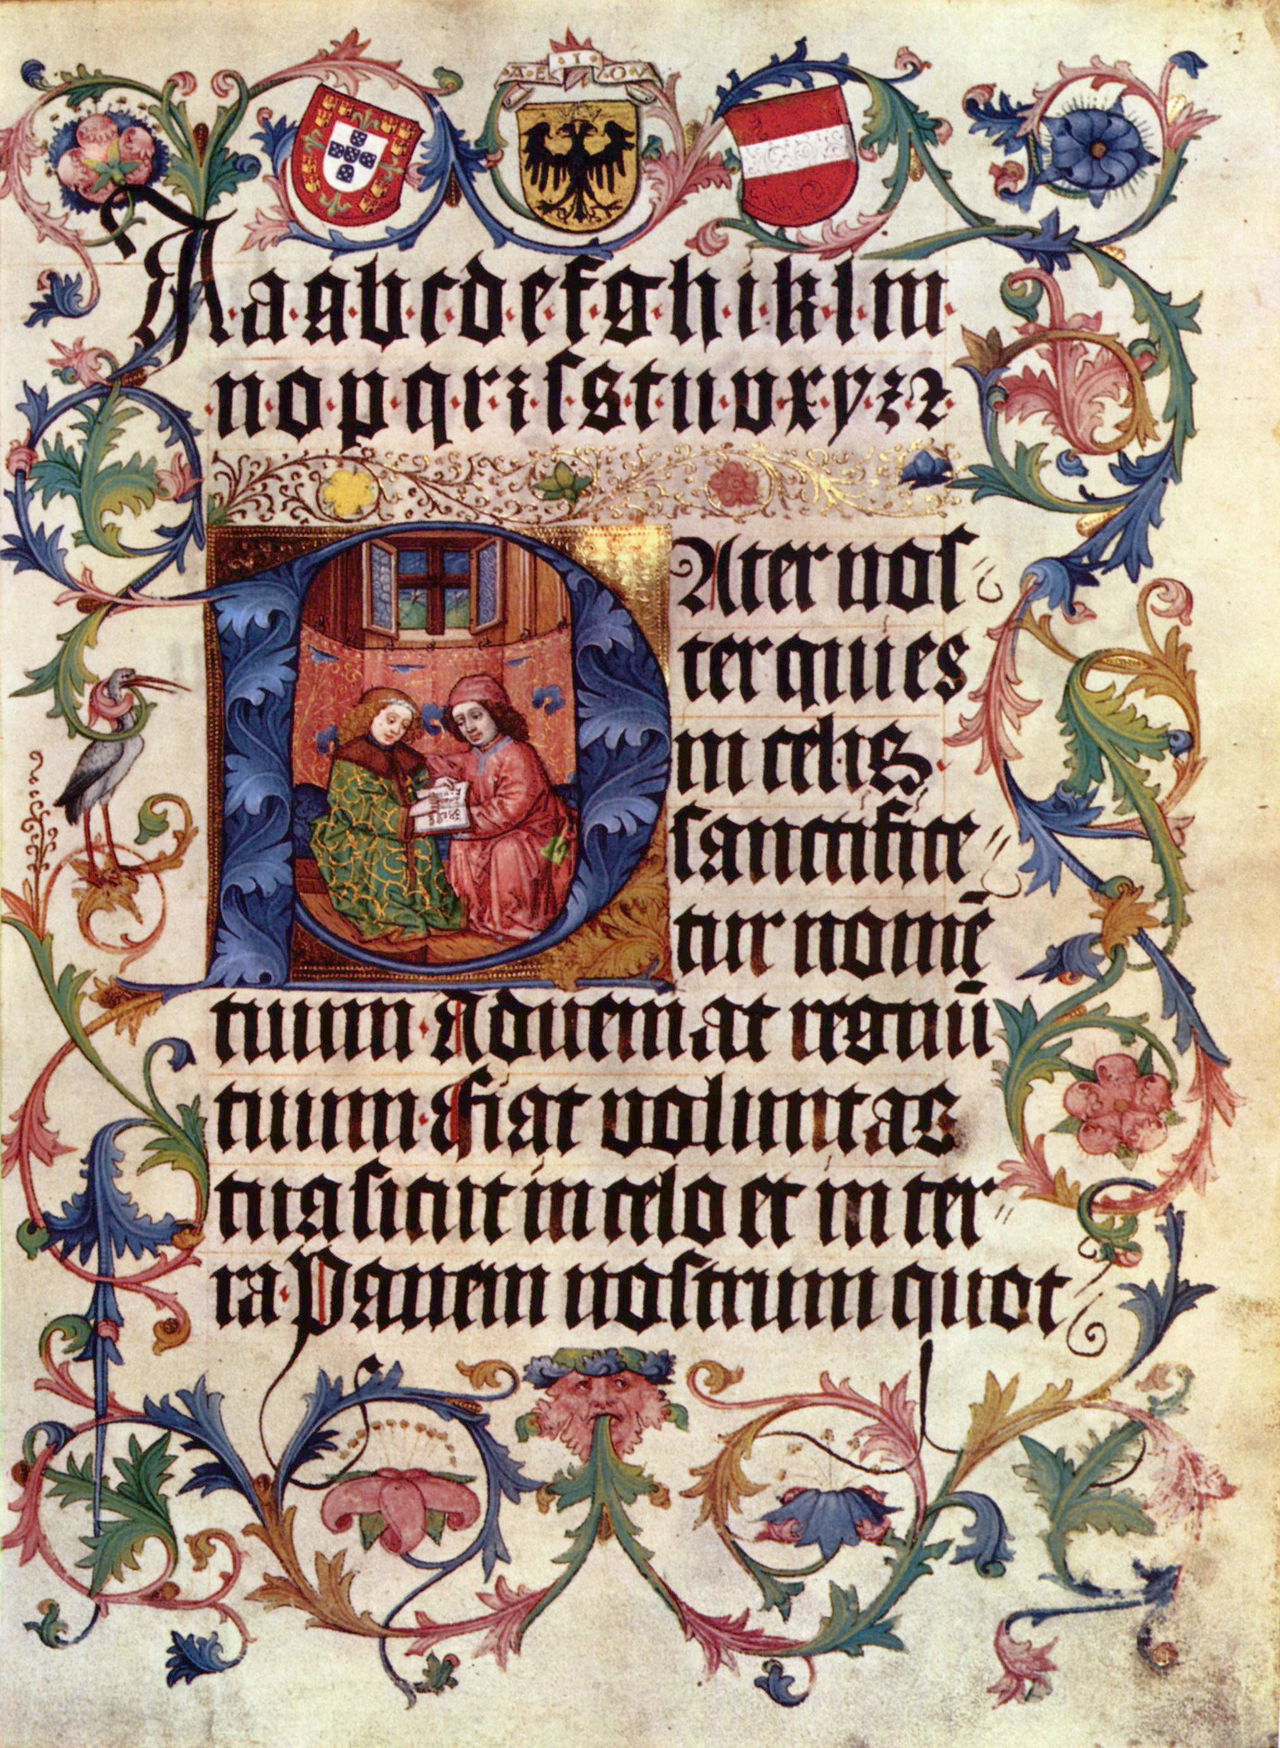 A·E·I·O·V
A a·a·b·c·d·e·f·g·h·i·k·l·m·
·n·o·p·q·r·ꝛ·ſ·s·t·u·v·x·y·z·ꝛ
PAter noſ⸗
ter qui es
in celis·
ſanctifice⸗
tur nomē
tuum·Adueniat regnū
tuum·Fiat voluntas
tua ſicut in celo et in ter⸗
ra·Panem noſtrum quot